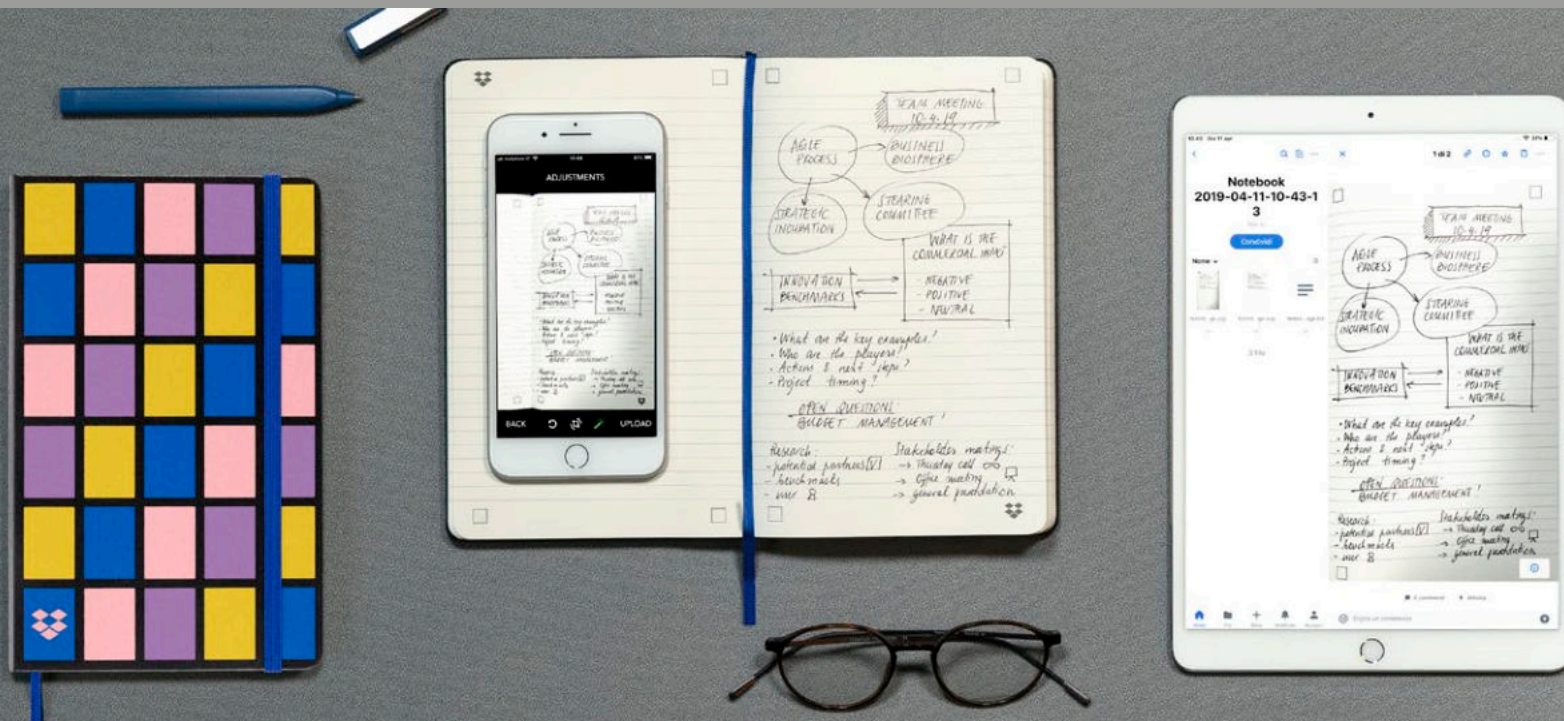 ADJUSTMENTS
BACK
UPLOAD
TEAM MEETING
10.4.19
AGILE
PROCESS
BUSINESS
BIOSPHERE
STRATEGIC
INCUBATION
STEARING
COMMITTEE
WHAT IS THE
COMMERCIAL IMPAC
- NEGATIVE
- POSITIVE
- NEUTRAL
INNOVATION
BENCHMARKS
• What are the key examples?
• Who are the players?
• Actions & next steps?
• Project timing?
OPEN QUESTIONS:
BUDGET MANAGEMENT!
Research:
- potential partners [V]
- benchmarks
- user
Stakeholder meetings:
→ Thursday call
→ Office meeting
→ general presentation
1 di 2
Notebook
2019-04-11-10-43-1
3
Condividi
Nome
TEAM MEETING
10.4.19
AGILE
PROCESS
BUSINESS
BIOSPHERE
STRATEGIC
INCUBATION
STEARING
COMMITTEE
WHAT IS THE
COMMERCIAL IMPAC
- NEGATIVE
- POSITIVE
- NEUTRAL
INNOVATION
BENCHMARKS
• What are the key examples?
• Who are the players?
• Actions & next steps?
• Project timing?
OPEN QUESTIONS:
BUDGET MANAGEMENT!
Research:
- potential partners [V]
- benchmarks
- user
Stakeholder meetings:
→ Thursday call
→ Office meeting
→ general presentation